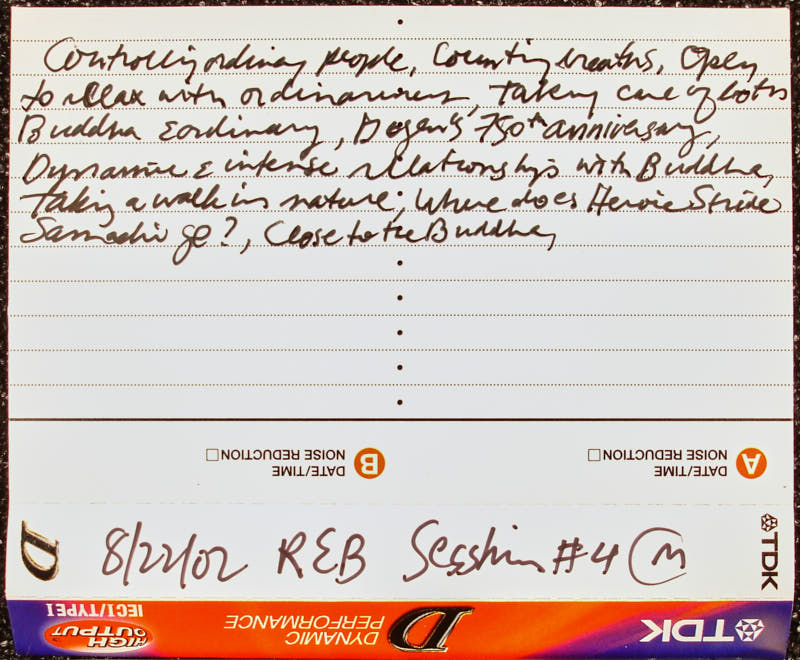 Controlling ordinary people, Counting breaths, Open
to relax with ordinariness, taking care of both
Buddha & ordinary, Dogen's 750th anniversary,
Dynamic & intense relationships with Buddha,
taking a walk in nature, Where does Heroic Stride
Samadhi go?, Close to the Buddha,
B DATE/TIME
NOISE REDUCTION
A DATE/TIME
NOISE REDUCTION
D 8/22/02 REB Sesshin #4 M TDK
HIGH OUTPUT IECI/TYPEI
DYNAMIC PERFORMANCE D
TDK